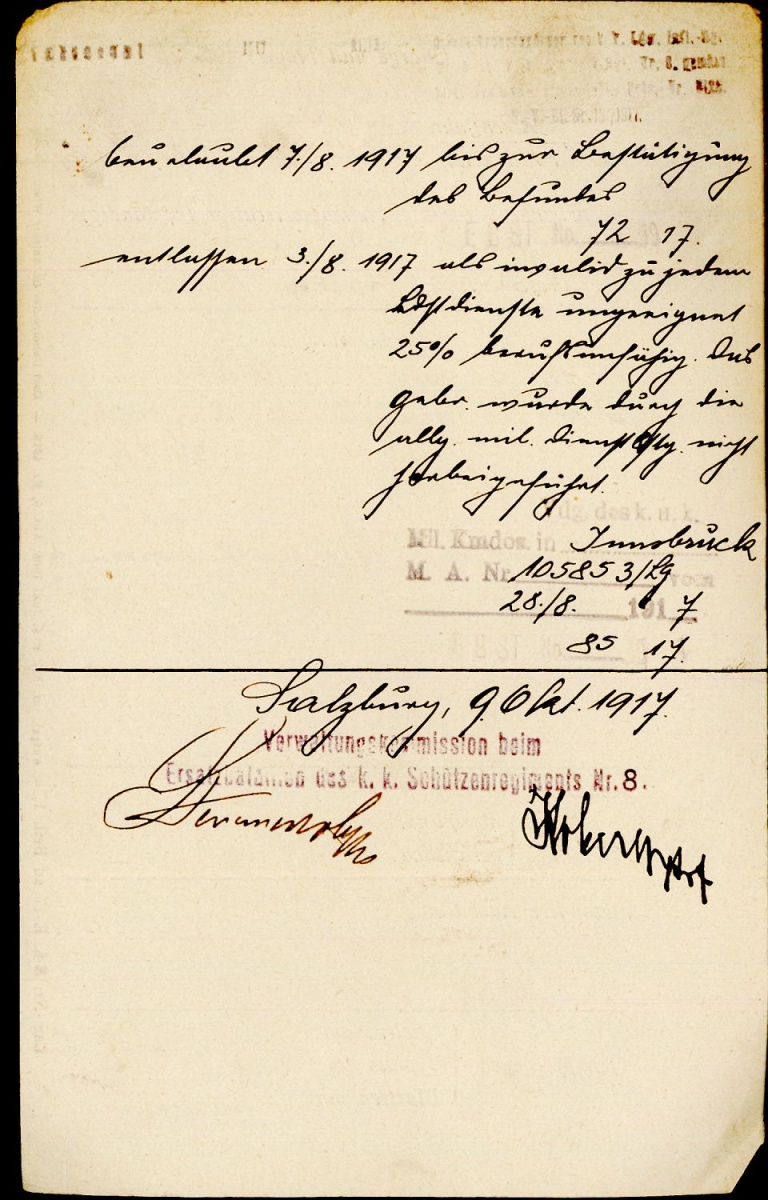 beurlaubt 7./8. 1917 bis zur Bestätigung
des Befundes
72 17.
entlassen 3./8. 1917 als invalid zu jedem
Ldstdienste ungeeignet
25% berufsunfähig. Das
Gebr. wurde durch die
allg. mil. Dienstlstg. nicht
herbeigeführt.
Mil. Kmdos. in Innsbruck
M. A. Nr. 105853/Lg vom
28./8. 1917
85 17.
Salzburg, 9. Okt. 1917.
Verwaltungskommission beim
Ersatzbataillon des k. k. Schützenregiments Nr. 8.